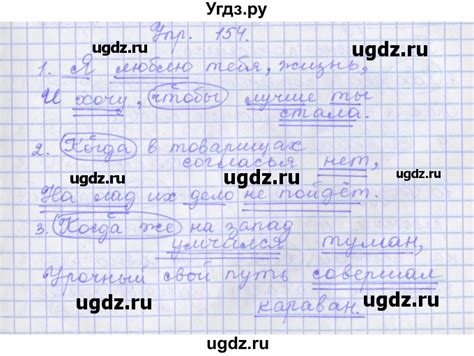 Угдз.ру
Упр. 154.
1. Я люблю тебя, жизнь,
И хочу, чтобы лучше ты
стала.
2. Когда в товарищах
согласья нет,
На лад их дело не пойдёт.
3. Когда же на запад
умчился туман,
Урочный свой путь совершал
караван.
ugdz.ru
ugdz.ru
ugdz.ru
ugdz.ru
ugdz.ru
ugdz.ru
ugdz.ru
ugdz.ru
ugdz.ru
ugdz.ru